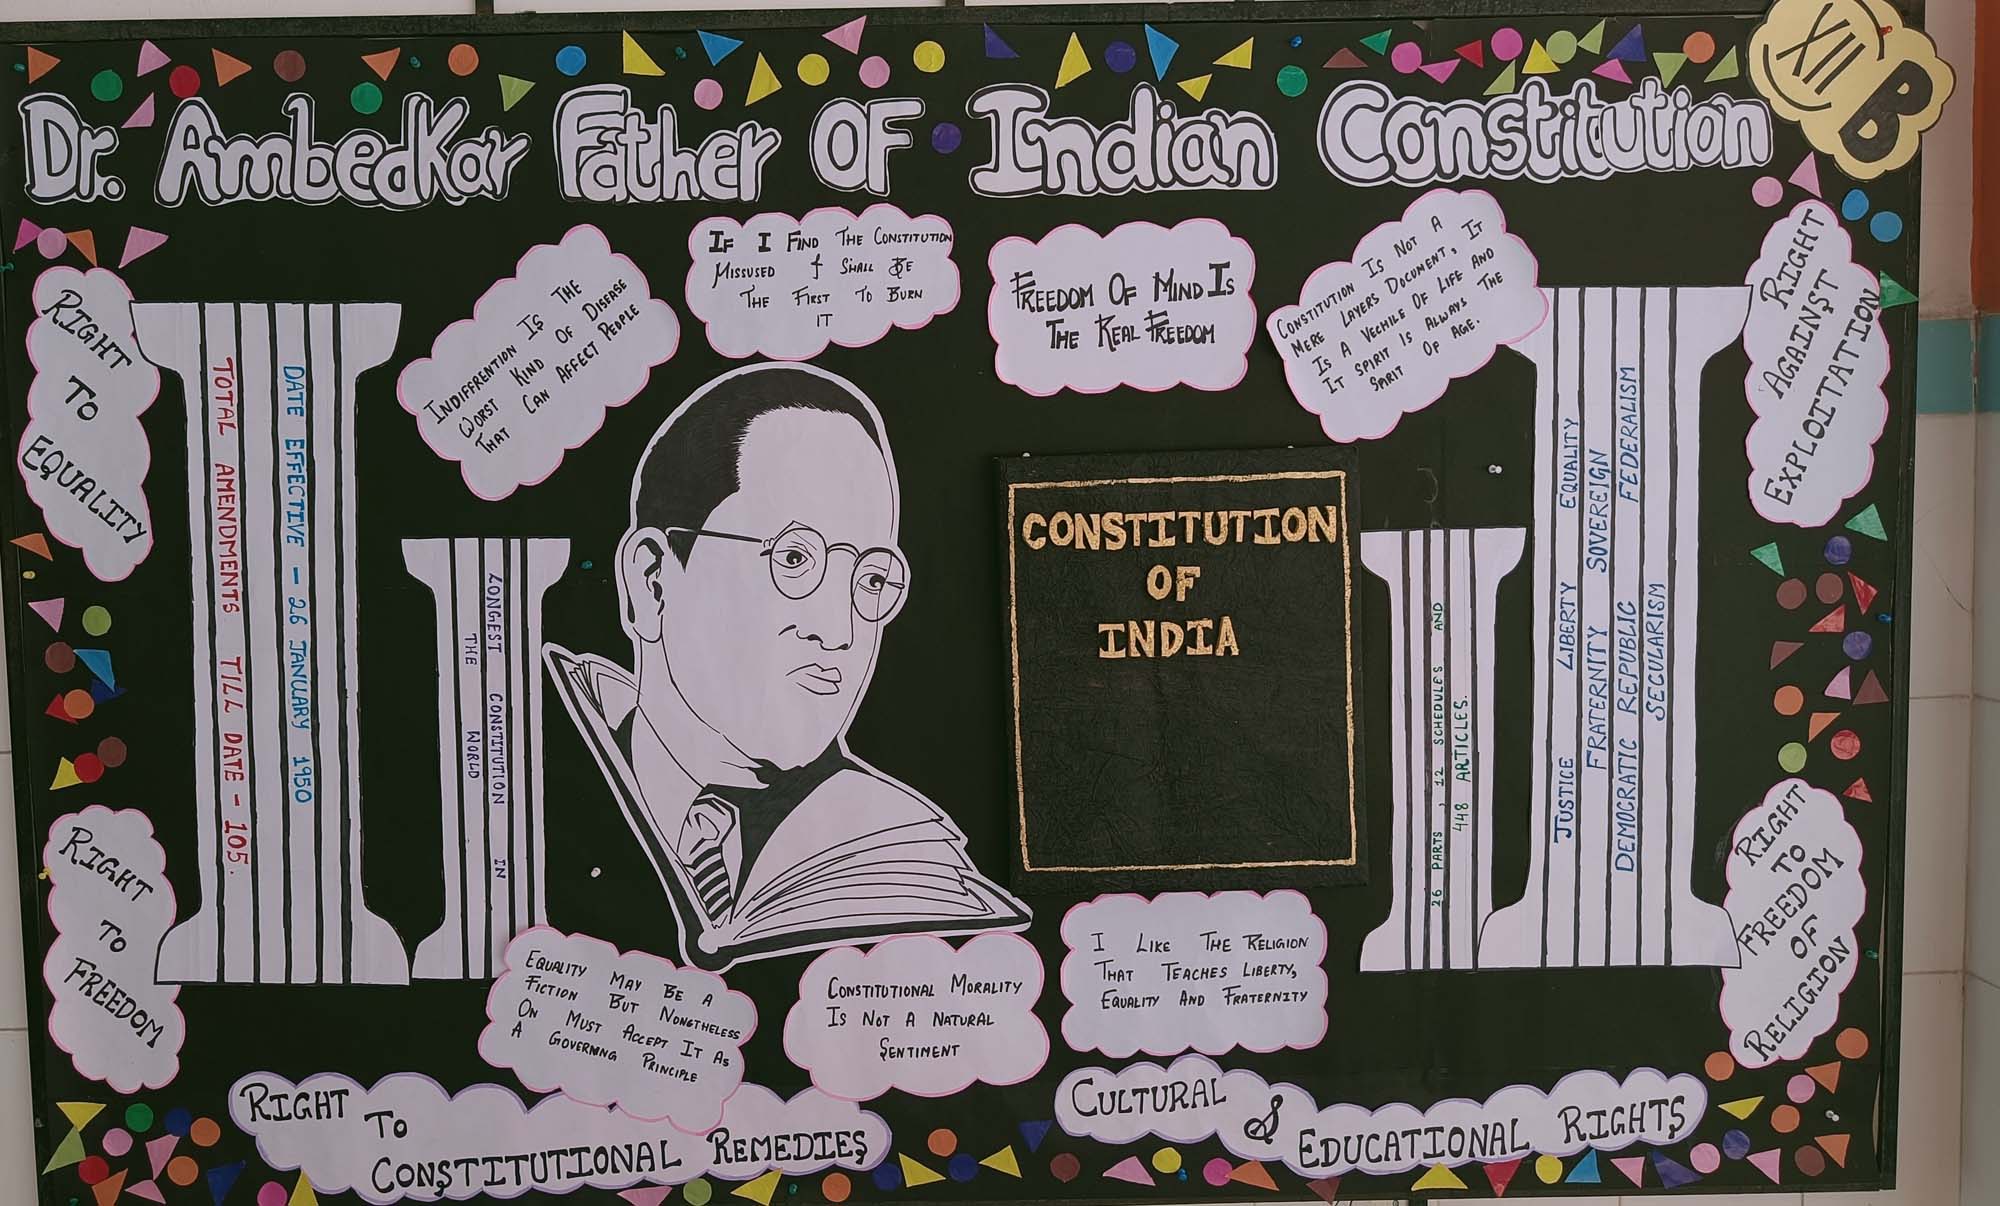 XII B
Dr. AmbedKar Father OF Indian Constitution
RIGHT
TO
EQUALITY
TOTAL AMENDMENTS TILL DATE - 105.
DATE EFFECTIVE - 26 JANUARY 1950
RIGHT
TO
FREEDOM
LONGEST CONSTITUTION IN
THE WORLD
INDIFFRENTION IS THE
WORST KIND OF DISEASE
THAT CAN AFFECT PEOPLE
IF I FIND THE CONSTITUTION
MISSUSED I SHALL BE
THE FIRST TO BURN
IT
FREEDOM OF MIND IS
THE REAL FREEDOM
CONSTITUTION IS NOT A
MERE LAYERS DOCUMENT, IT
IS A VECHILE OF LIFE AND
IT SPIRIT IS ALWAYS THE
SPIRIT OF AGE.
CONSTITUTION
OF
INDIA
26 PARTS, 12 SCHEDULES AND
448 ARTICLES.
JUSTICE LIBERTY EQUALITY
FRATERNITY SOVEREIGN
DEMOCRATIC REPUBLIC FEDERALISM
SECULARISM
RIGHT
AGAINST
EXPLOITATION
RIGHT
TO
FREEDOM
OF
RELIGION
EQUALITY MAY BE A
FICTION BUT NONGTHELESS
ON MUST ACCEPT IT AS
A GOVERNING PRINCIPLE
CONSTITUTIONAL MORALITY
IS NOT A NATURAL
SENTIMENT
I LIKE THE RELIGION
THAT TEACHES LIBERTY,
EQUALITY AND FRATERNITY
RIGHT TO
CONSTITUTIONAL REMEDIES
CULTURAL &
EDUCATIONAL RIGHTS